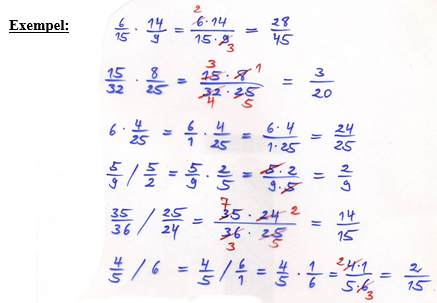 Exempel: 6/15 · 14/9 = 6·14/15·9 = 28/45 2 3
15/32 · 8/25 = 15·8/32·25 = 3/20 3 1 4 5
6 · 4/25 = 6/1 · 4/25 = 6·4/1·25 = 24/25
5/9 / 5/2 = 5/9 · 2/5 = 5·2/9·5 = 2/9
35/36 / 25/24 = 35·24/36·25 = 14/15 7 2 3 5
4/5 / 6 = 4/5 / 6/1 = 4/5 · 1/6 = 4·1/5·6 = 2/15 2 3